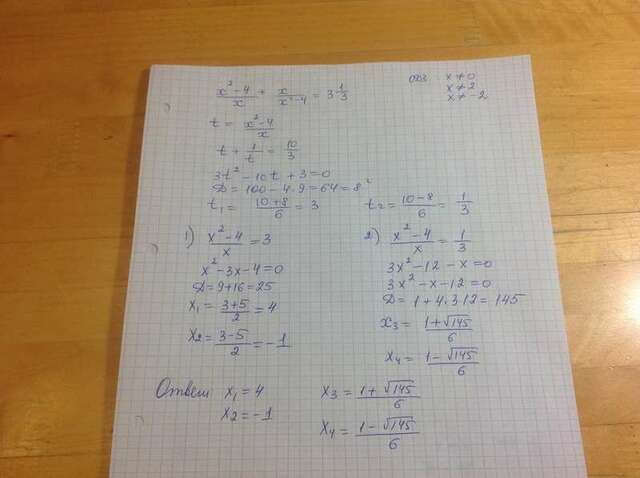 x²-4/x + x/x²-4 = 3 1/3
ОДЗ: x≠0
x≠2
x≠-2
t = x²-4/x
t + 1/t = 10/3
3t² - 10t + 3 = 0
D = 100 - 4·9 = 64 = 8²
t₁ = 10+8/6 = 3
t₂ = 10-8/6 = 1/3
1) x²-4/x = 3
x² - 3x - 4 = 0
D = 9 + 16 = 25
x₁ = 3+5/2 = 4
x₂ = 3-5/2 = -1
2) x²-4/x = 1/3
3x² - 12 - x = 0
3x² - x - 12 = 0
D = 1 + 4·3·12 = 145
x₃ = 1+√145/6
x₄ = 1-√145/6
Ответ: x₁ = 4
x₂ = -1
x₃ = 1+√145/6
x₄ = 1-√145/6